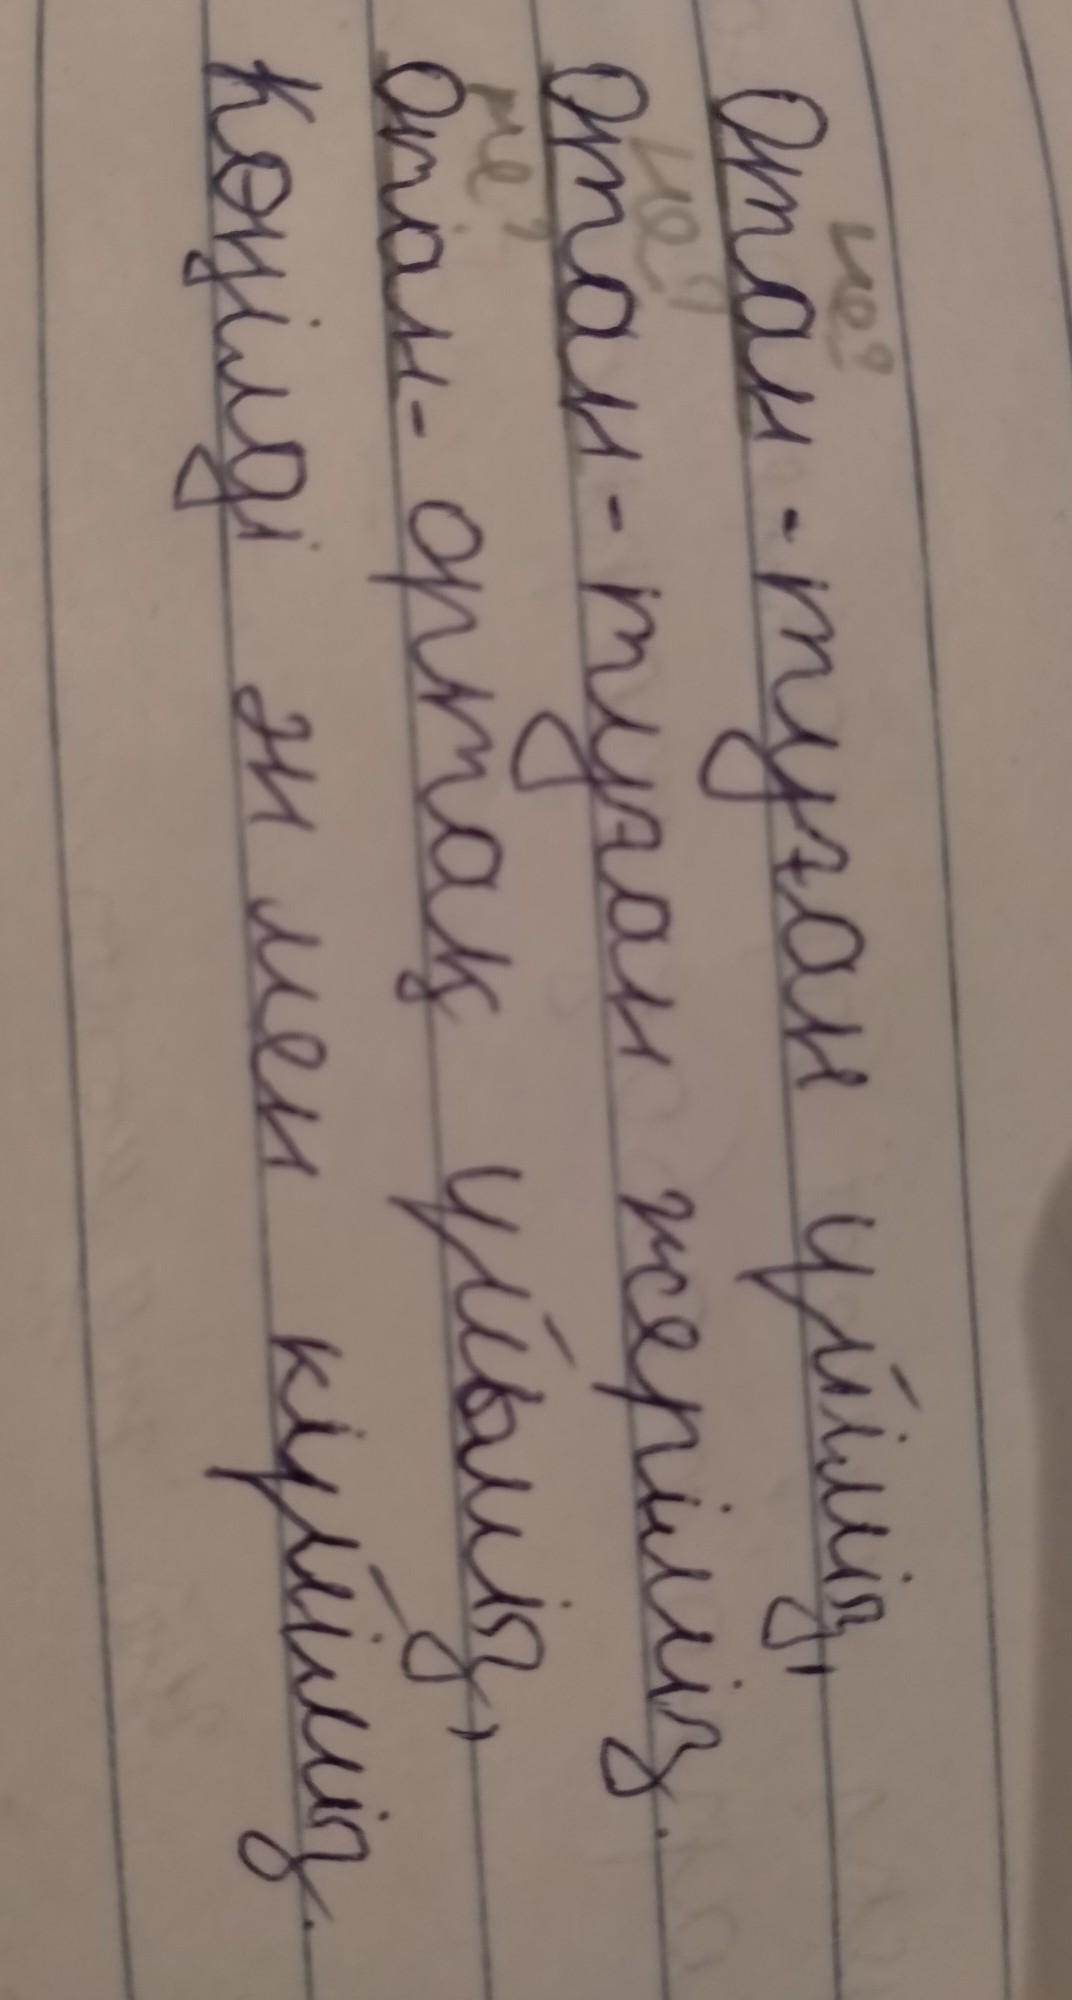 не?
Отан-туған үйіміз,
не?
Отан-туған жеріміз.
не?
Отан-ортақ ұйымыз,
Көңілді ән мен күйіміз.